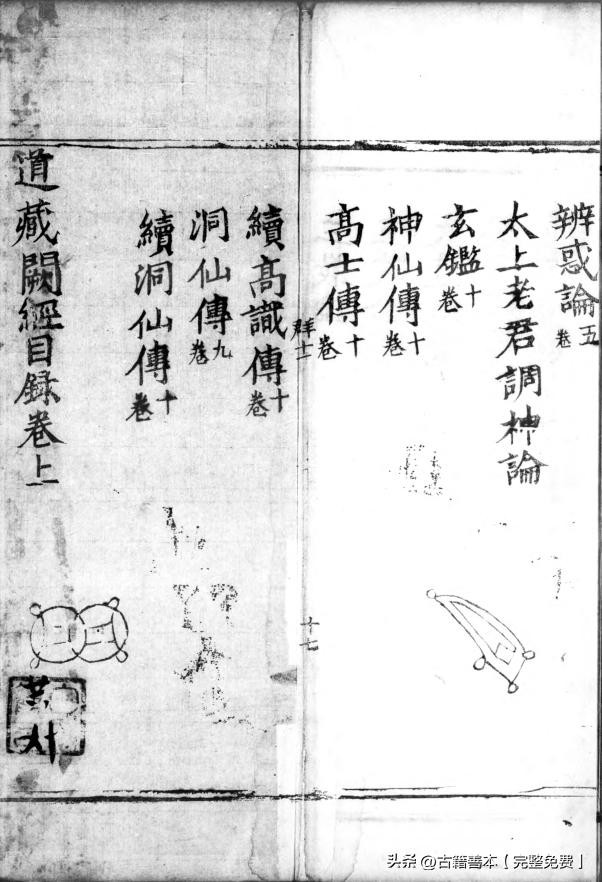 辨惑論五卷
太上老君調神論
玄鑑十卷
神仙傳十卷
高士傳十卷
群十二
十七
續高識傳十卷
洞仙傳九卷
續洞仙傳十卷
道藏闕經目録卷上
头条 @古籍善本【完整免费】